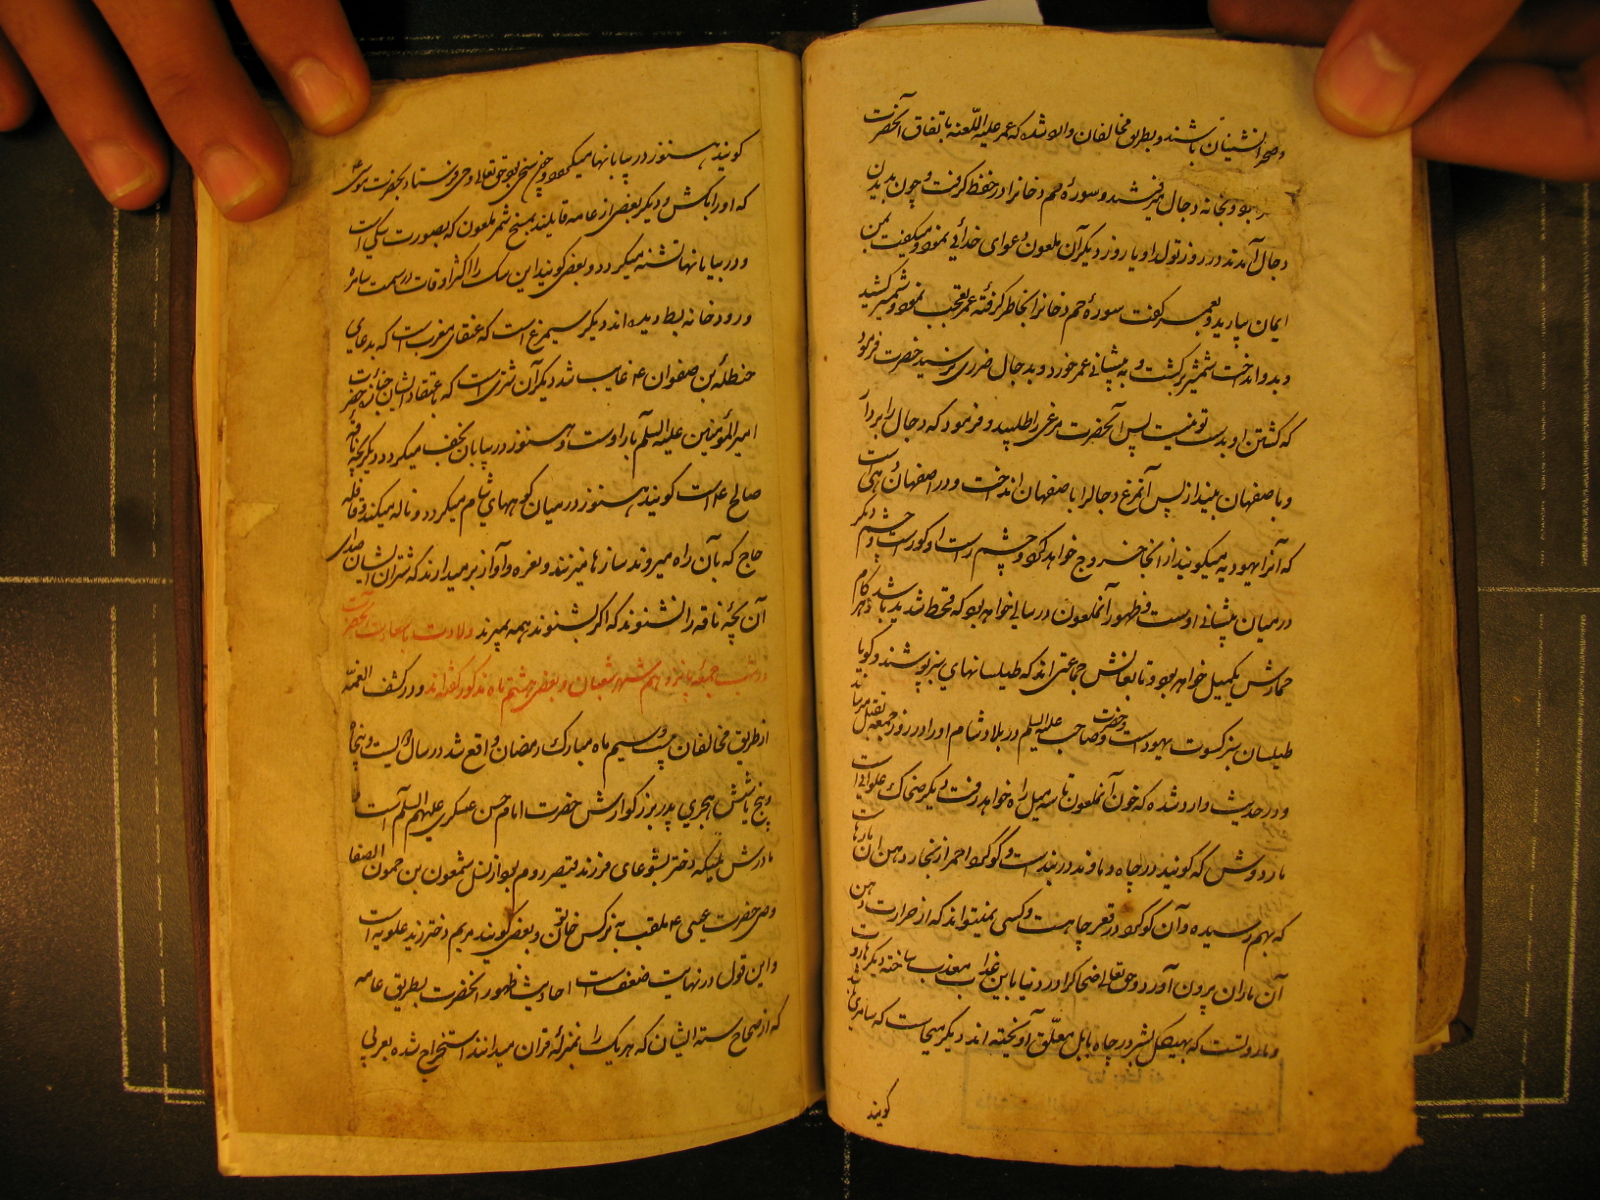 و صحرانشینان باشند و بطریق مخالفان وارد شده که عمر علیه اللعنه باتفاق آنحضرت
بود و بخانه دجال میرفتند و سورهٔ حم دخانرا در حفظ گرفت و چون بدیدن
دجال آمدند در روز تولد او یا روز دیگر آن ملعون دعوای خدائی نمود و میگفت بمن
ایمان بیارید و بعمر گفت سورهٔ حم دخانرا بخاطر گرفتهٔ عمر تعجب نمود و شمشیر کشید
و بدو انداخت شمشیر برگشت و به پیشانی عمر خورد و بدجال ضرری نرسید حضرت فرمود
که کشتن او بدست تو نیست پس آنحضرت مرغی را طلبید و فرمود که دجال را بردار
و باصفهان بینداز پس آنمرغ دجالرا باصفهان انداخت و در اصفهان دهی است
که آنرا یهودیه میگویند از آنجا خروج خواهد کرد و چشم راست او کور است و چشم دیگر
در میان پیشانی اوست و ظهور آنملعون در سالی خواهد بود که قحط شدید باشد و هر گام
حمارش یکمیل خواهد بود و تابعانش جماعتی اند که طیلسانهای سبز پوشند و گویا
طیلسان سبز کسوت یهود است و حضرت صاحب علیه السلم در بلاد شام او را در روز جمعه بقتل میرساند
و در حدیث وارد شده که خون آنملعون تا سه میل راه خواهد رفت دیگر ضحاک علوانی است
مار دوش که گویند در چاه دماوند در بند است و گوگرد احمر از بخار دهن آن مارها
که بهم رسیده و آن گوگرد در قعر چاهست و کسی نمیتواند که از حرارت دهن
آن ماران بیرون آورد و حق تعالی ضحاکرا در دنیا باین عذاب معذب ساخته دیگر هاروت
و ماروتست که بهیکل بشر در چاه بابل معلق آویخته اند دیگر میجاست که سامری اش
گویند
گویند هنوز در بیابانها میگردد و حق تعالی وحی فرستاد بحضرت موسی
که او را بکش و دیگر بعضی از عامه قایلند بمسخ شمر ملعون که بصورت سگی است
و در بیابانها تشنه میگردد و بعضی گویند این سگ را اکثر اوقات در سمت سامره
و رودخانه بط دیده اند دیگر سیمرغ است که عنقای مغرب است که بدعای
حنظلة بن صفوان ع غایب شد دیگر آن شتری است که باعتقاد ایشان جنازهٔ حضرت
امیرالمؤمنین علیه السلم بار اوست و هنوز در بیابان نجف میگردد دیگر بچه ناقهٔ
صالح ع است گویند هنوز در میان کوههای شام میگردد و ناله میکند و قافله
حاج که بآن راه میروند سازها میزنند و نعره و آواز برمیدارند که شتران ایشان صدای
آن بچهٔ ناقه را نشنوند که اگر بشنوند همه بمیرند ولادت با سعادت آنحضرت
در شب جمعه پانزدهم شهر شعبان و بعضی هشتم ماه مذکور گفته اند و در کشف الغمه
از طریق مخالفان بیست و سیم ماه مبارک رمضان واقع شد در سال دویست و پنجاه
و پنج یا شش هجری پدر بزرگوارش حضرت امام حسن عسکری علیهم السلم است
مادرش ملیکه دختر یشوعای فرزند قیصر روم بود از نسل شمعون بن حمون الصفا
وصی حضرت عیسی ع ملقب به نرجس خاتون و بعضی گویند مریم دختر زید علویه است
و این قول در نهایت ضعف است احادیث ظهور آنحضرت بطریق عامه
که از صحاح سته ایشان که هر یک را بمنزلهٔ قرآن میدانند استخراج شده بعربی